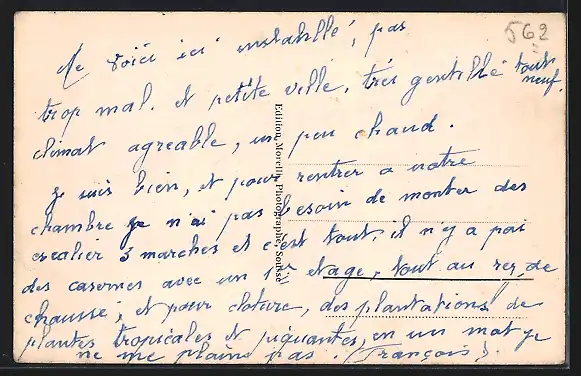 562
Me voici ici installé, pas
trop mal. et petite ville, très gentille tout neuf.
climat agréable, un peu chaud.
Je suis bien, et pour rentrer a notre
chambre je n'ai pas besoin de monter des
escalier 3 marches et c'est tout, il n'y a pas
des casernes avec un 1er etage, tout au rez de
chaussé; et pour cloture, des plantations de
plantes tropicales et piquantes, en un mot je
ne me plains pas. (François).
Edition Morelli, Photographe, Sousse